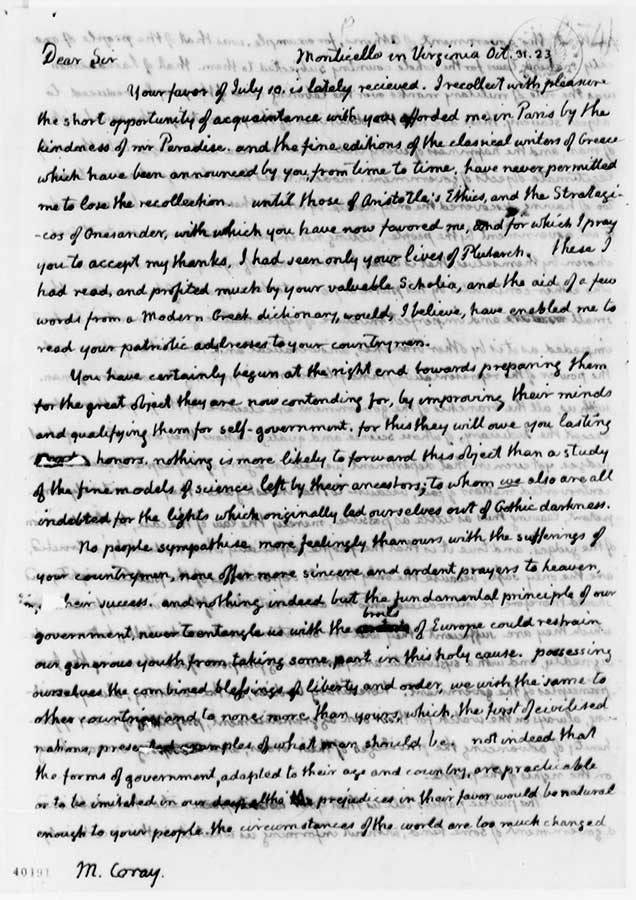 Dear Sir Monticello in Virginia Oct. 31. 23
Your favor of July 10. is lately recieved. I recollect with pleasure
the short opportunity of acquaintance with you afforded me in Paris by the
kindness of mr Paradise. and the fine editions of the classical writers of Greece
which have been announced by you, from time to time, have never permitted
me to lose the recollection. until those of Aristotle's Ethics, and the Strategi-
-cos of Onesander, with which you have now favored me, and for which I pray
you to accept my thanks, I had seen only your lives of Plutarch. These I
had read, and profited much by your valuable Scholia, and the aid of a few
words from a Modern Greek dictionary, would, I believe, have enabled me to
read your patriotic addresses to your countrymen.
You have certainly begun at the right end towards preparing them
for the great object they are now contending for, by improving their minds
and qualifying them for self-government. for this they will owe you lasting
honors. nothing is more likely to forward this object than a study
of the fine models of science left by their ancestors; to whom we also are all
indebted for the lights which originally led ourselves out of Gothic darkness.
No people sympathise more feelingly than ours with the sufferings of
your countrymen, none offer more sincere and ardent prayers to heaven,
heir success. and nothing indeed but the fundamental principle of our
government, never to entangle us with the broils of Europe could restrain
our generous youth from taking some part in this holy cause. possessing
ourselves the combined blessings of liberty and order, we wish the same to
other countries and to none more than yours, which, the first of civilised
nations, presented examples of what man should be. not indeed that
the forms of government, adapted to their age and country, are practicable
or to be imitated in our day, altho prejudices in their favor would be natural
enough to your people. the circumstances of the world are too much changed
40191
M. Coray.